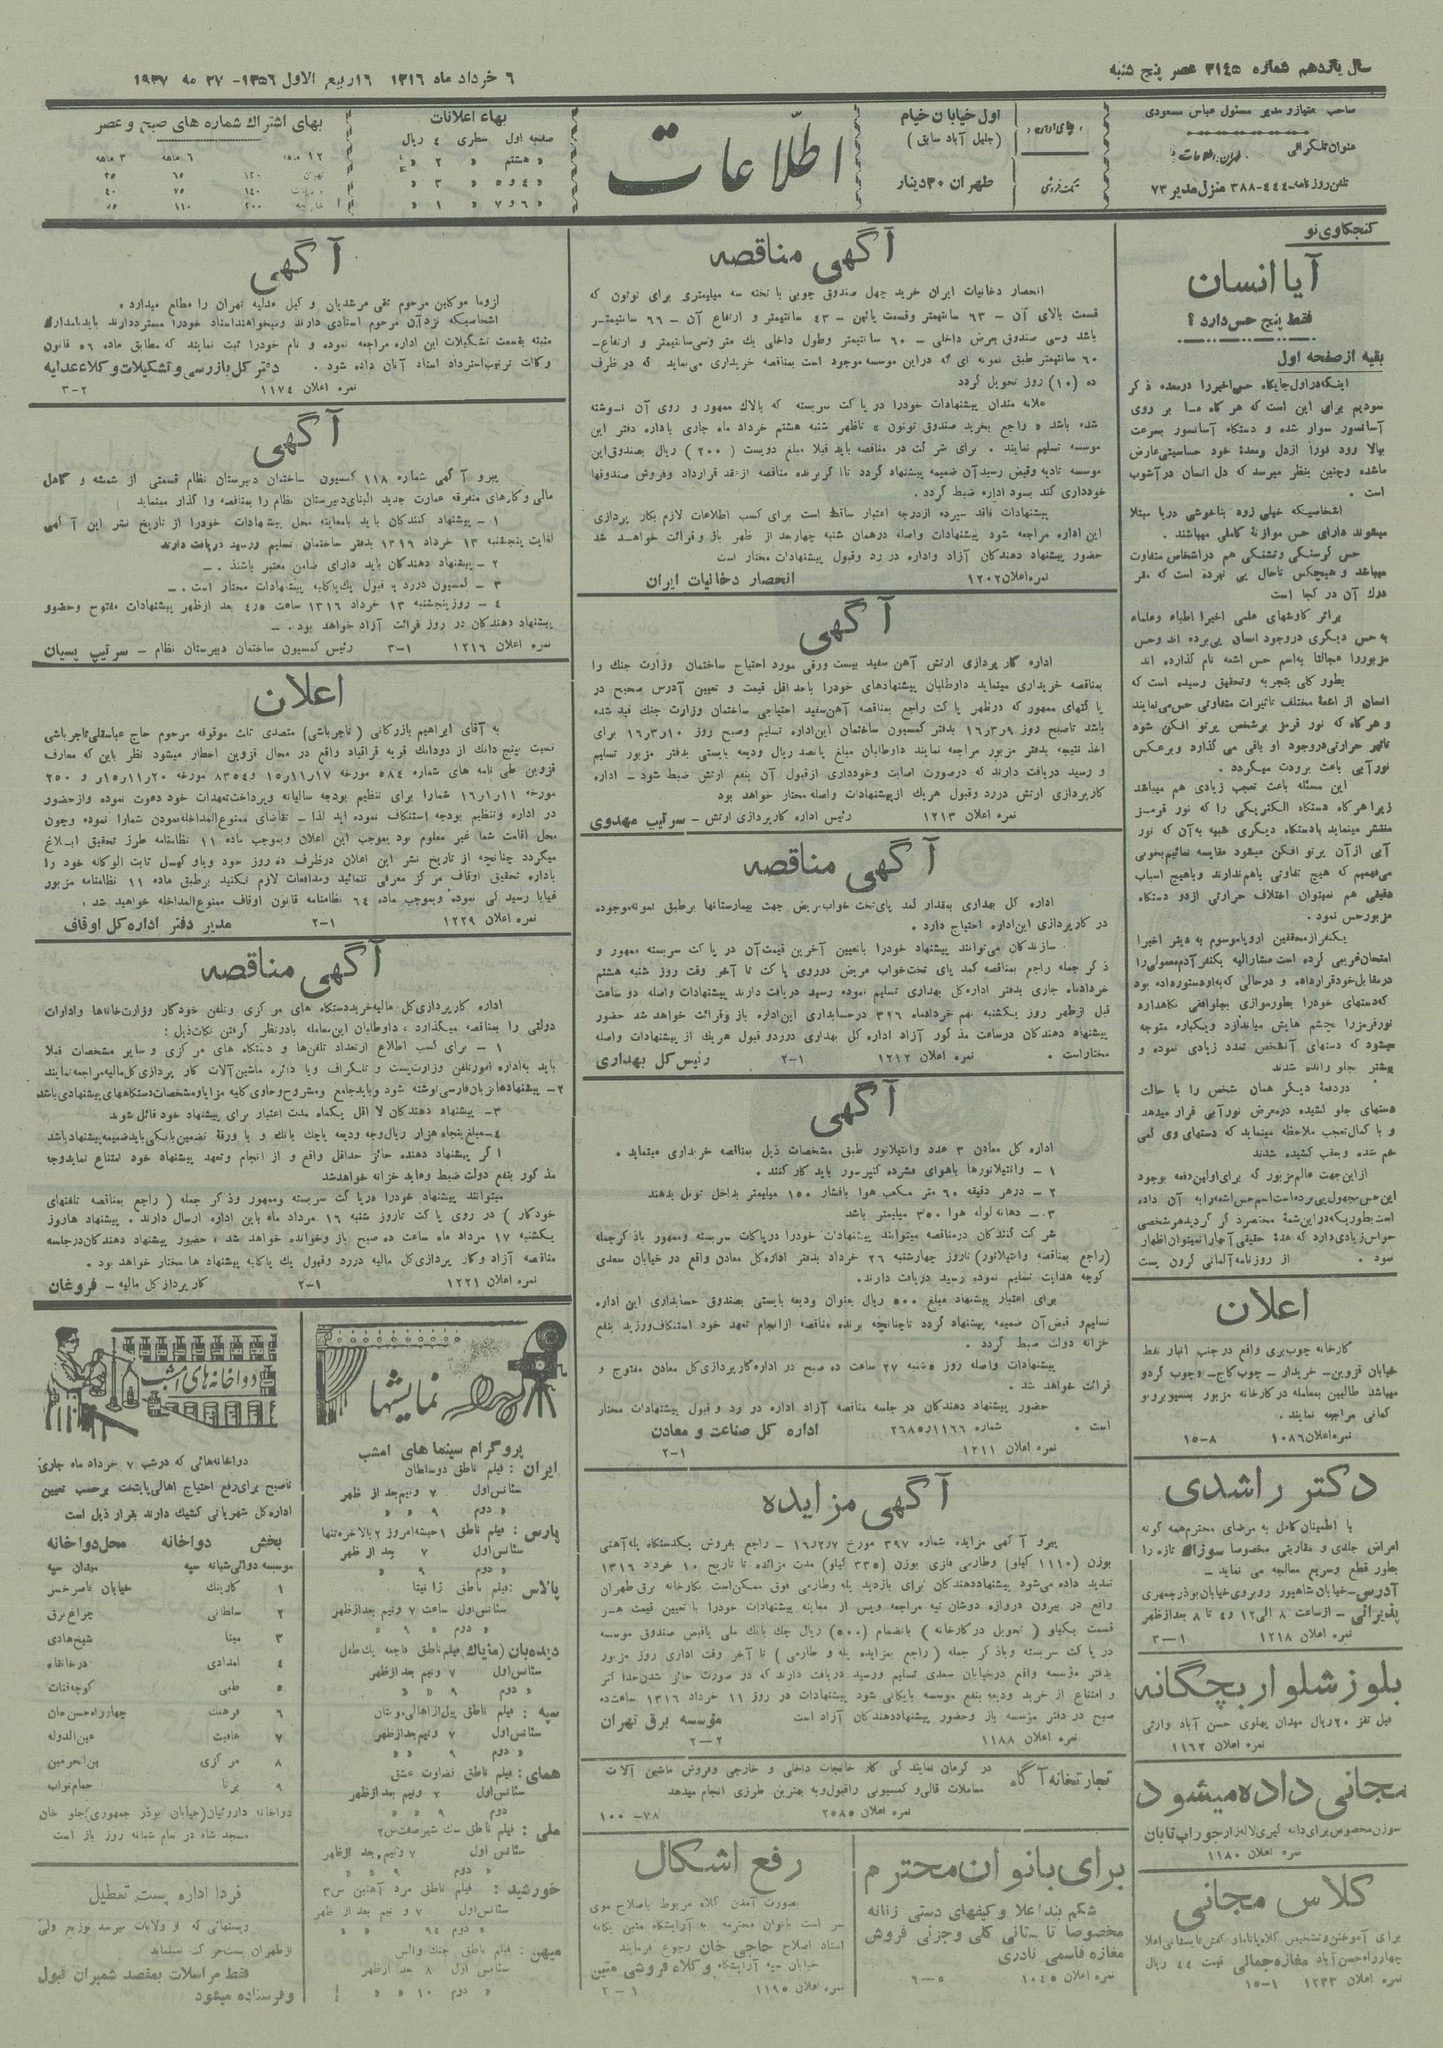 سال یازدهم شماره ۳۱۴۵ عصر پنج شنبه
۶ خرداد ماه ۱۳۱۶ ۱۶ ربیع الاول ۱۳۵۶- ۲۷ مه ۱۹۳۷
صاحب متیاز و مدیر مسئول عباس مسعودی
عنوان تلگرافی
طهران، اطلاعات
تلفن روزنامه-۴۴۴-۳۸۸ منزل مدیر ۷۳
جای اداره
تکفروشی
اول خیابان خیام
(جلیل آباد سابق)
طهران ۳۰ دینار
اطلاعات
بهاء اعلانات
صفحه اول سطری ۴ ریال
« هشتم « ۲ «
« ۴و۵ « ۳ «
« ۶و۷ « ۱ «
بهای اشتراك شماره های صبح و عصر
۱۲ ماهه ۶ ماهه ۳ ماهه
تهران ۱۲۰ ۶۵ ۳۵
۱۴۰ ۷۵ ۴۰
خارجه ۲۰۰ ۱۱۰
کنجکاوی نو
آیا انسان
فقط پنج حس دارد ؟
بقیه از صفحه اول
اینکه در اول جایگاه حس اخیر را در معده ذکر
نمودیم برای این است که هر گاه ما بر روی
آسانسور سوار شده و دستگاه آسانسور بسرعت
ببالا رود فوراً از دل و معدهٔ خود حساسیتی عارض
ماشده و چنین بنظر میرسد که دل انسان در آشوب
است .
اشخاصیکه خیلی زود بناخوشی دریا مبتلا
میشوند دارای حس موازنهٔ کاملی میباشند .
حس گرسنگی و تشنگی هم در اشخاص متفاوت
میباشد و هیچکس تاحال پی نبرده است که مقر
درك آن در کجا است
براثر کاوشهای علمی اخیرا اطباء و علماء
به حس دیگری در وجود انسان پی برده اند و حس
مزبور را عجالتا به اسم حس اشعه نام گذارده اند
بطور کلی بتجربه و تحقیق رسیده است که
انسان از اشعهٔ مختلف تاثیرات متفاوتی حس می نمایند
و هر گاه که نور قرمز بر شخص پرتو افکن شود
تاثیر حرارتی در وجود او باقی می گذارد و برعکس
نور آبی باعث برودت میگردد .
این مسئله باعث تعجب زیادی هم میباشد
زیرا هر گاه دستگاه الکتریکی را که نور قرمز
منتشر مینماید بادستگاه دیگری شبیه به آن که نور
آبی از آن پرتو افکن میشود مقایسه نمائیم بخوبی
می فهمیم که هیچ تفاوتی باهم ندارند و باهیچ اسباب
دقیقی هم نمیتوان اختلاف حرارتی از دو دستگاه
مزبور حس نمود .
یکنفر از محققین اروپا موسوم به دیتر اخیرا
امتحان غریبی کرده است مشارالیه یکنفر آدم معمولی را
در مقابل خود قرار داده و در حالی که به او دستور داده بود
که دستهای خود را بطور موازی بجلو افقی نگاهدارد
نور قرمز را بچشم هایش میاندازد و یکباره متوجه
میشود که دستهای آنشخص تمدد زیادی نموده و
بیشتر بجلو رانده شدند
در دفعهٔ دیگر همان شخص را با حالت
دستهای جلو کشیده در معرض نور آبی قرار میدهد
و با کمال تعجب ملاحظه مینماید که دستهای وی کمی
خم شده و بعقب کشیده شدند
از این جهت عالم مزبور که برای اولین دفعه بوجود
این حس مجهول پی برده است اسم حس اشعه را به آن داده
است بطوریکه در این شمهٔ مختصر ذکر گردید هر شخصی
حواس زیادی دارد که عدهٔ حقیقی آنها را نمیتوان اظهار
نمود . از روزنامه آلمانی گرون پست
اعلان
کارخانه چوب بری واقع در جنب انبار نفط
خیابان قزوین- خریدار - چوب کاج- و چوب گردو
میباشد طالبین بمعامله در کارخانه مزبور بمسیو برونو
کمانی مراجعه نمایند .
نمره اعلان ۱۰۸۶ ۸-۱۵
دکتر راشدی
با اطمینان کامل به مرضای محترم همه گونه
امراض جلدی و مقاربتی مخصوصا سوزاك تازه را
بطور قطع و سریع معالجه می نماید -
آدرس- خیابان شاهپور روبروی خیابان بوذر جمهری
پذیرائی - از ساعت ۸ الی ۱۲ و ۴ تا ۸ بعد از ظهر
نمره اعلان ۱۲۱۸ ۱-۳
بلوز شلوار بچگانه
فیل تقز ۲۰ ریال میدان پهلوی حسن آباد وارثی
نمره اعلان ۱۱۶۲
مجانی داده میشود
سوزن مخصوص برای دانه گیری لاله زار جوراب تابان
نمره اعلان ۱۱۸۰
کلاس مجانی
چهار راه حسن آباد مغازه جمالی قیمت ۴۴ ریال
نمره اعلان ۱۲۳۳ ۱-۱۵
آگهی مناقصه
انحصار دخانیات ایران خرید چهل صندوق چوبی با تخته سه میلیمتری برای توتون که
قسمت بالای آن - ۶۳ سانتیمتر وقسمت پائین - ۴۳ سانتیمتر و ارتفاع آن - ۶۶ سانتیمتر
باشد وسی صندوق بعرض داخلی - ۶۰ سانتیمتر وطول داخلی یك متر وسی سانتیمتر و ارتفاع-
۶۰ سانتیمتر طبق نمونه ای که در این موسسه موجود است بمناقصه خریداری می نماید که در ظرف
ده (۱۰) روز تحویل گردد
علاقه مندان پیشنهادات خود را در پاکت سربسته که بالاك ممهور و روی آن نوشته
شده باشد « راجع بخرید صندوق توتون » تاظهر شنبه هشتم خرداد ماه جاری باداره دفتر این
موسسه تسلیم نمایند . برای شرکت در مناقصه باید قبلا مبلغ دویست (۲۰۰) ریال بصندوق این
موسسه تادیه وقبض رسید آن ضمیمه پیشنهاد گردد تا اگر برنده مناقصه از عقد قرارداد وفروش صندوقها
خودداری کند بسود اداره ضبط گردد .
پیشنهادات فاقد سپرده از درجه اعتبار ساقط است برای کسب اطلاعات لازم بکار پردازی
این اداره مراجعه شود پیشنهادات واصله در همان شنبه چهار بعد از ظهر باز و قرائت خواهد شد
حضور پیشنهاد دهندگان آزاد واداره در رد وقبول پیشنهادات مختار است
نمره اعلان ۱۲۰۲ انحصار دخانیات ایران
آگهی
اداره کار پردازی ارتش آهن سفید بیست ورقی مورد احتیاج ساختمان وزارت جنك را
بمناقصه خریداری مینماید داوطلبان پیشنهادهای خود را باحداقل قیمت و تعیین آدرس صحیح در
پاکتهای ممهور که در ظهر پاکت راجع بمناقصه آهن سفید احتیاجی ساختمان وزارت جنك قید شده
باشد تاصبح روز ۱۶٫۳٫۹ بدفتر کمسیون ساختمان این اداره تسلیم وصبح روز ۱۶٫۳٫۱۰ برای
اخذ نتیجه بدفتر مزبور مراجعه نمایند داوطلبان مبلغ پانصد ریال ودیعه بایستی بدفتر مزبور تسلیم
و رسید دریافت دارند که در صورت اصابت وخودداری از قبول آن بنفع ارتش ضبط شود - اداره
کارپردازی ارتش در رد وقبول هر یك از پیشنهادات واصله مختار خواهد بود
نمره اعلان ۱۲۱۳ رئیس اداره کارپردازی ارتش - سرتیپ مهدوی
آگهی مناقصه
اداره کل بهداری بمقدار کمد پای تخت خواب مریض جهت بیمارستانها برطبق نمونه موجوده
در کارپردازی این اداره احتیاج دارد .
سازندگان می توانند پیشنهاد خود را باتعیین آخرین قیمت آن در پاکت سربسته ممهور و
ذکر جمله راجع بمناقصه کمد پای تخت خواب مریض در روی پاکت تا آخر وقت روز شنبه هشتم
خرداد ماه جاری بدفتر اداره کل بهداری تسلیم نموده رسید دریافت دارند پیشنهادات واصله دو ساعت
قبل از ظهر روز یکشنبه نهم خرداد ماه ۳۱۶ در حسابداری این اداره باز وقرائت خواهد شد حضور
پیشنهاد دهندگان در ساعت مذکور آزاد اداره کل بهداری در رد و قبول هر یك از پیشنهادات واصله
مختار است . نمره اعلان ۱۲۱۲ ۱-۲ رئیس کل بهداری
آگهی
اداره کل معادن ۳ عدد وانتیلاتور طبق مشخصات ذیل بمناقصه خریداری مینماید .
۱ - وانتیلاتورها باهوای فشرده کمپرسور باید کار کنند .
۲ - در هر دقیقه ۶۰ متر مکعب هوا بافشار ۱۵۰ میلیمتر بداخل تونل بدهند
۳ - دهانه لوله هوا ۳۵۰ میلیمتر باشد
شرکت کنندگان در مناقصه میتوانند پیشنهادات خود را در پاکات سربسته وممهور باذکر جمله
(راجع بمناقصه وانتیلاتور) تاروز چهارشنبه ۲۶ خرداد بدفتر اداره کل معادن واقع در خیابان سعدی
کوچه هدایت تسلیم نموده رسید دریافت دارند .
برای اعتبار پیشنهاد مبلغ ۵۰۰ ریال بعنوان ودیعه بایستی بصندوق حسابداری این اداره
تسلیم و قبض آن ضمیمه پیشنهاد گردد تاچنانچه برنده مناقصه از انجام تعهد خود استنکاف ورزید بنفع
خزانه دولت ضبط گردد .
پیشنهادات واصله روز ۵ شنبه ۲۷ ساعت ده صبح در اداره کارپردازی کل معادن مفتوح و
قرائت خواهد شد .
حضور پیشنهاد دهندگان در جلسه مناقصه آزاد اداره در رد و قبول پیشنهادات مختار
است . شماره ۲۶۸۵٫۱۱۶۶ اداره کل صناعت و معادن
نمره اعلان ۱۲۱۱ ۱-۲
آگهی مزایده
پیرو آگهی مزایده شماره ۳۹۷ مورخ ۱۶٫۲٫۷ - راجع بفروش یکدستگاه پله آهنی
بوزن (۱۱۱۰ کیلو) وطارمی فلزی بوزن (۳۳۵ کیلو) مدت مزائده تا تاریخ ۱۰ خرداد ۱۳۱۶
تمدید داده می شود پیشنهاد دهندگان برای بازدید پله وطارمی فوق ممکن است بکارخانه برق طهران
واقع در بیرون دروازه دوشان تپه مراجعه وپس از معاینه پیشنهادات خود را با تعیین قیمت هر
قسمت یکیلو ( تحویل در کارخانه ) بانضمام (۵۰۰) ریال چك بانك ملی یا قبض صندوق موسسه
در پاکت سربسته وباذکر جمله ( راجع بمزایده پله و طارمی ) تا آخر وقت اداری روز مزبور
بدفتر مؤسسه واقع در خیابان سعدی تسلیم ورسید دریافت دارند که در صورت حائز شدن حداکثر
و امتناع از خرید ودیعه بنفع موسسه بایگانی شود پیشنهادات در روز ۱۱ خرداد ۱۳۱۶ ساعت ده
صبح در دفتر مؤسسه باز وحضور پیشنهاد دهندگان آزاد است مؤسسه برق تهران
نمره اعلان ۱۱۸۸ ۲-۲
تجارتخانه آگاه
در کرمان نمایندگی کارخانجات داخلی و خارجی وفروش ماشین آلات
معاملات قالی و کمسیونی راقبول و به بهترین طرزی انجام میدهد
نمره اعلان ۲۵۸۵ ۷۸-۱۰۰
برای بانوان محترم
شکم بند اعلا و کیفهای دستی زنانه
مخصوصا تابستانی کلی و جزئی فروش
مغازه قاسمی نادری
نمره اعلان ۱۰۴۵ ۵-۶
رفع اشکال
بصورت آمدن کلاه مربوط باصلاح موی
سر است بانوان محترمه به آرایشگاه متین بکافه
استاد اصلاح حاجی خان رجوع فرمایند
خیابان سپه آرایشگاه و کلاه فروشی متین
نمره اعلان ۱۱۹۵ ۱-۲
آگهی
از وما موکلین مرحوم تقی مرشدیان وکیل عدلیه تهران را مطلع میدارد .
اشخاصیکه نزد آن مرحوم اسنادی دارند ومیخواهند اسناد خود را مسترد دارند باید بامدارك
مثبته بقسمت تشکیلات این اداره مراجعه نموده و نام خود را ثبت نمایند که مطابق ماده ۵۶ قانون
وکالت ترتیب استرداد اسناد آنان داده شود . دفتر کل بازرسی و تشکیلات وکلاء عدلیه
نمره اعلان ۱۱۷۴ ۲-۳
آگهی
پیرو آگهی شماره ۱۱۸ کمسیون ساختمان دبیرستان نظام قسمتی از شمشه و کاهل
مالی وکارهای متفرقه عمارت جدید البنای دبیرستان نظام را بمناقصه واگذار مینماید
۱ - پیشنهاد کنندگان باید بامعاینه محل پیشنهادات خود را از تاریخ نشر این آگهی
لغایت پنجشنبه ۱۳ خرداد ۱۳۱۶ بدفتر ساختمان تسلیم ورسید دریافت دارند
۲ - پیشنهاد دهندگان باید دارای ضامن معتبر باشند . -
۳ - کمسیون در رد یا قبول یك یا کلیه پیشنهادات مختار است . -
۴ - روز پنجشنبه ۱۳ خرداد ۱۳۱۶ ساعت ۴٫۵ بعد از ظهر پیشنهادات مفتوح وحضور
پیشنهاد دهندگان در روز قرائت آزاد خواهد بود . -
نمره اعلان ۱۲۱۶ ۱-۳ رئیس کمسیون ساختمان دبیرستان نظام - سرتیپ پسیان
اعلان
به آقای ابراهیم بازرگانی (تاجرباشی) متصدی ثلث موقوفه مرحوم حاج عباسقلی تاجر باشی
نسبت بپنج دانك از دودانك قریه قرقباد واقع در محال قزوین اخطار میشود نظر باین که معارف
قزوین طی نامه های شماره ۵۸۴ مورخه ۱۵٫۱۱٫۱۷ و ۸۳۵۴ مورخه ۱۵٫۱۱٫۲۰ و ۲۵۰
مورخه ۱۶٫۱٫۱۱ شما را برای تنظیم بودجه سالیانه وپرداخت تعهدات خود دعوت نموده واز حضور
در اداره وتنظیم بودجه استنکاف نموده اید لذا - تقاضای ممنوع المداخله نمودن شما را نموده وچون
محل اقامت شما غیر معلوم بود بموجب این اعلان وبموجب ماده ۱۱ نظامنامه طرز تحقیق ابلاغ
میگردد چنانچه از تاریخ نشر این اعلان در ظرف ده روز خود ویا وکیل ثابت الوکاله خود را
باداره تحقیق اوقاف مرکز معرفی ننمائید ومدافعات لازم نکنید برطبق ماده ۱۱ نظامنامه مزبور
غیابا رسیدگی نموده وبموجب ماده ۶۴ نظامنامه قانون اوقاف ممنوع المداخله خواهید شد .
نمره اعلان ۱۲۲۹ ۱-۲ مدیر دفتر اداره کل اوقاف
آگهی مناقصه
اداره کارپردازی کل مالیه خرید دستگاه های مرکزی وتلفن خودکار وزارت خانه ها وادارات
دولتی را بمناقصه میگذارد ، داوطلبان این معامله بادر نظر گرفتن نکات ذیل :
۱ - برای کسب اطلاع از تعداد تلفن ها و دستگاه های مرکزی و سایر مشخصات قبلا
باید به اداره امور تلفن وزارت پست و تلگراف ویا دائره ماشین آلات کارپردازی کل مالیه مراجعه نمایند
۲- پیشنهادها بزبان فارسی نوشته شود وباید جامع ومشروح وحاوی کلیه مزایا ومشخصات دستگاههای پیشنهادی باشد
۳ - پیشنهاد دهندگان لااقل یکماه مدت اعتبار برای پیشنهاد خود قائل شوند
۴- مبلغ پنجاه هزار ریال وجه ودیعه یا چك بانك و یا ورقه تضمین بانکی باید ضمیمه پیشنهاد باشد
اگر پیشنهاد دهنده حائز حداقل واقع و از انجام وتعهد پیشنهاد خود امتناع نماید وجه
مذکور بنفع دولت ضبط وعاید خزانه خواهد شد
میتوانند پیشنهاد خود را در پاکت سربسته وممهور وذکر جمله ( راجع بمناقصه تلفنهای
خودکار ) در روی پاکت تاروز شنبه ۱۶ مرداد ماه باین اداره ارسال دارند . پیشنهادها روز
یکشنبه ۱۷ مرداد ماه ساعت ده صبح باز وخوانده خواهد شد ، حضور پیشنهاد دهندگان در جلسه
مناقصه آزاد وکارپردازی کل مالیه در رد وقبول یك یا کلیه پیشنهادها مختار خواهد بود .
نمره اعلان ۱۲۲۱ ۱-۲ کارپرداز کل مالیه - فروغان
نمایشها
پروگرام سینماهای امشب
ایران : فیلم ناطق دوسلطان
سئانس اول ۷ ونیم بعد از ظهر
« دوم ۹ « «
پارس : فیلم ناطق
سئانس اول ۷ بعد از ظهر
« دوم ۹ « «
پالاس : فیلم ناطق زانیتا
سئانس اول ساعت ۷ ونیم بعد از ظهر
« دوم « ۹ « «
دیده بان (مایاك) فیلم ناطق فاجعه یك طفل
سئانس اول ۷ ونیم بعد از ظهر
« دوم ۹ « «
سپه : فیلم ناطق
سئانس اول ۷ ونیم بعد از ظهر
« دوم ۹ « «
همای : فیلم ناطق قضاوت عشق
سئانس اول ۷ ونیم بعد از ظهر
« دوم ۹ « «
ملی : فیلم ناطق سك شیر صفت س۲
سئانس اول ۷ ونیم بعد از ظهر
« دوم ۹ « «
خورشید : فیلم ناطق مرد آهنین س۳
سئانس اول ۷ و نیم بعد از ظهر
« دوم
میهن : فیلم ناطق جنك والس
سئانس اول ۸ بعد از ظهر
« دوم ۱۰ « «
دواخانه های امشب
دواخانه هائی که در شب ۷ خرداد ماه جاری
تاصبح برای رفع احتیاج اهالی پایتخت برحسب تعیین
اداره کل شهربانی کشیك دارند بقرار ذیل است
بخش دواخانه محل دواخانه
موسسه دوائی شبانه سپه میدان سپه
۱ کاربنك خیابان ناصر خسرو
۲ سلطانی چراغ برق
۳ مینا شیخ هادی
۴ امدادی درخانقاه
۵ طبی کوچه قنات
۶ فرهنك چهار راه حسن خان
۷ عافیت عین الدوله
۸ مرکزی بین الحرمین
۹ برنا حمام نواب
دواخانه داروئیان (خیابان بوذرجمهوری) جلو خان
مسجد شاه در تمام شبانه روز باز است
فردا اداره پست تعطیل
وپستهائی که از ولایات میرسد توزیع ولی
از طهران پست حرکت نمینماید
فقط مراسلات بمقصد شمیران قبول
وفرستاده میشود